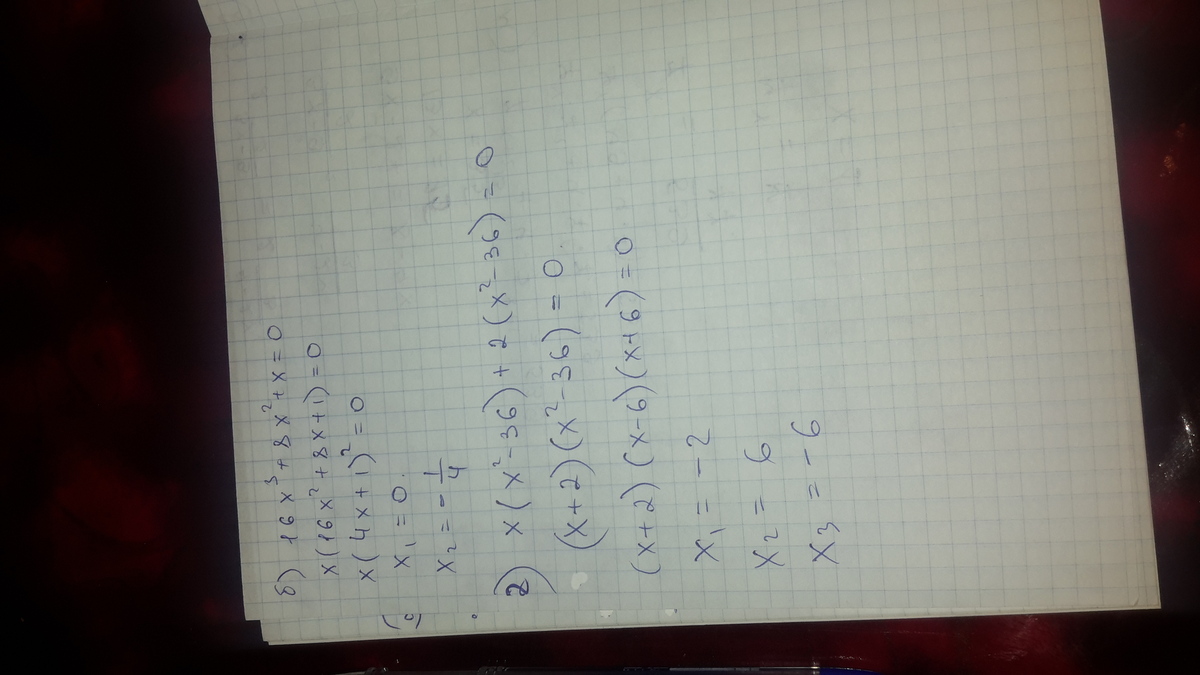 б) 16x³ + 8x² + x = 0
x(16x² + 8x + 1) = 0
x(4x + 1)² = 0
x₁ = 0.
x₂ = -1/4
2) x(x² - 36) + 2(x² - 36) = 0
(x + 2)(x² - 36) = 0.
(x + 2)(x - 6)(x + 6) = 0
x₁ = -2
x₂ = 6
x₃ = -6